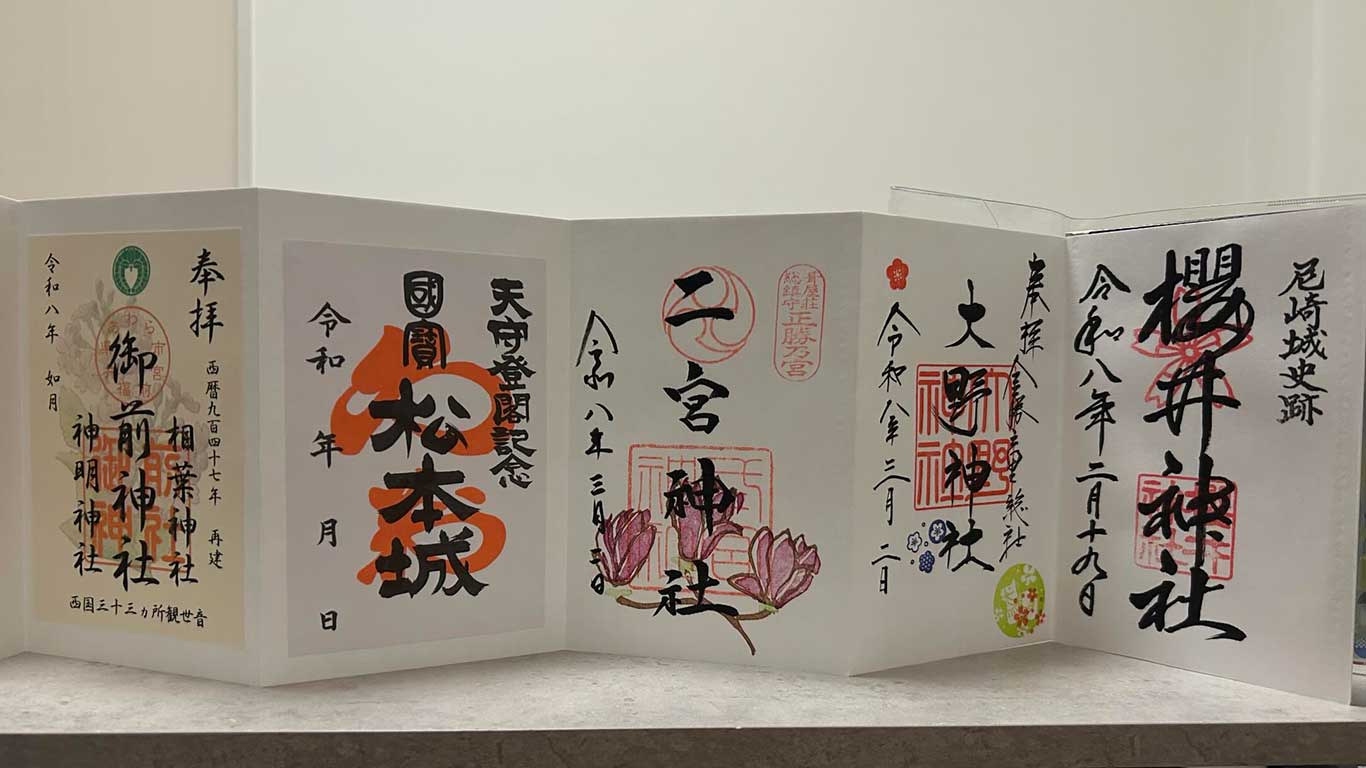 尼崎城史跡
櫻井神社
令和八年二月十九日
奉拝
大野神社
二宮神社
総鎮守
正勝乃宮
令和八年三月
天守登閣記念
國寶
松本城
令和 年 月 日
奉拝
西暦九百四十七年 再建
相葉神社
御前神社
神明神社
令和八年 如月
西国三十三ヵ所観世音